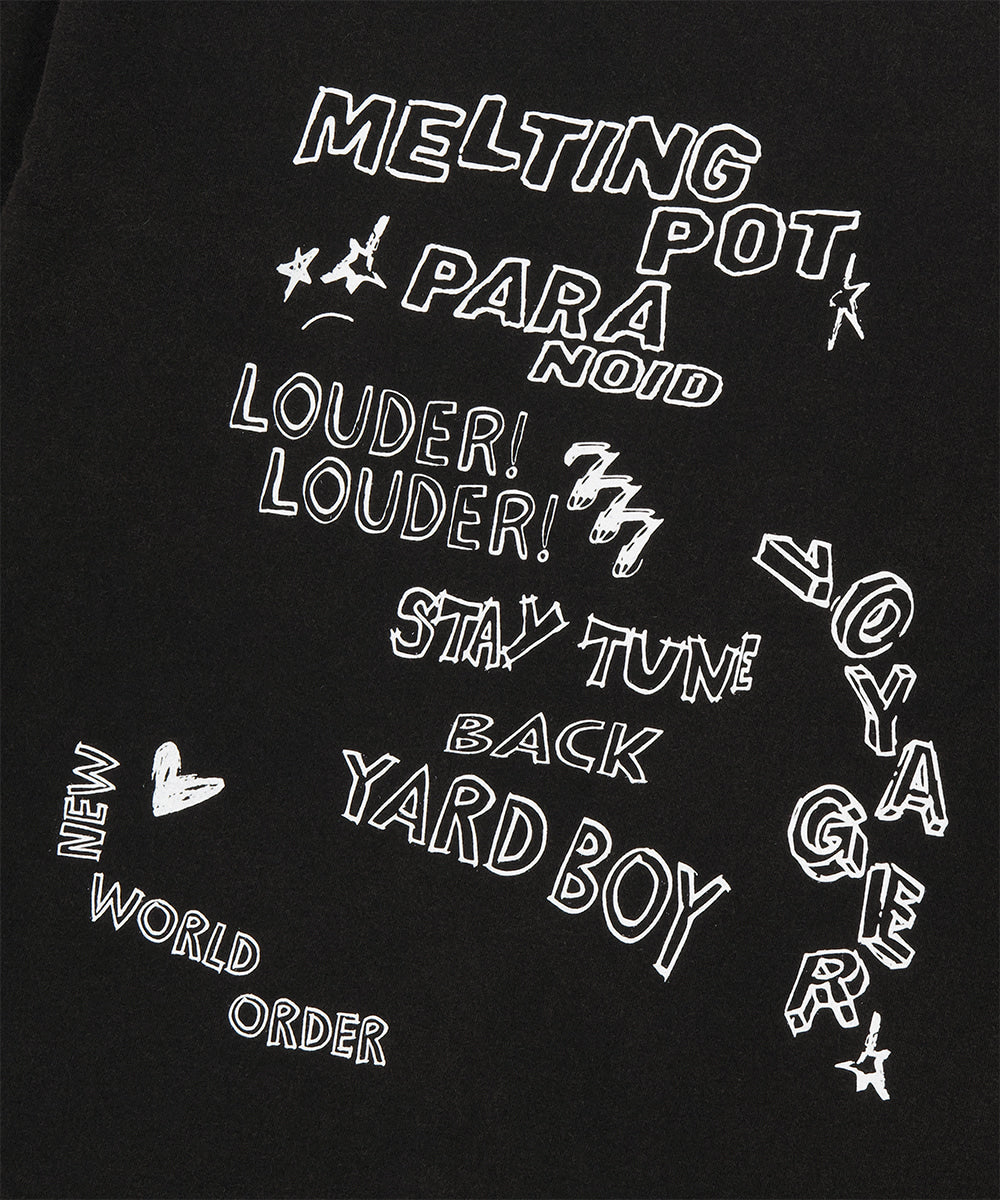 MELTING
POT
PARA
NOID
LOUDER!
LOUDER!
STAY TUNE
BACK
YARD BOY
VOYAGER
NEW
WORLD
ORDER